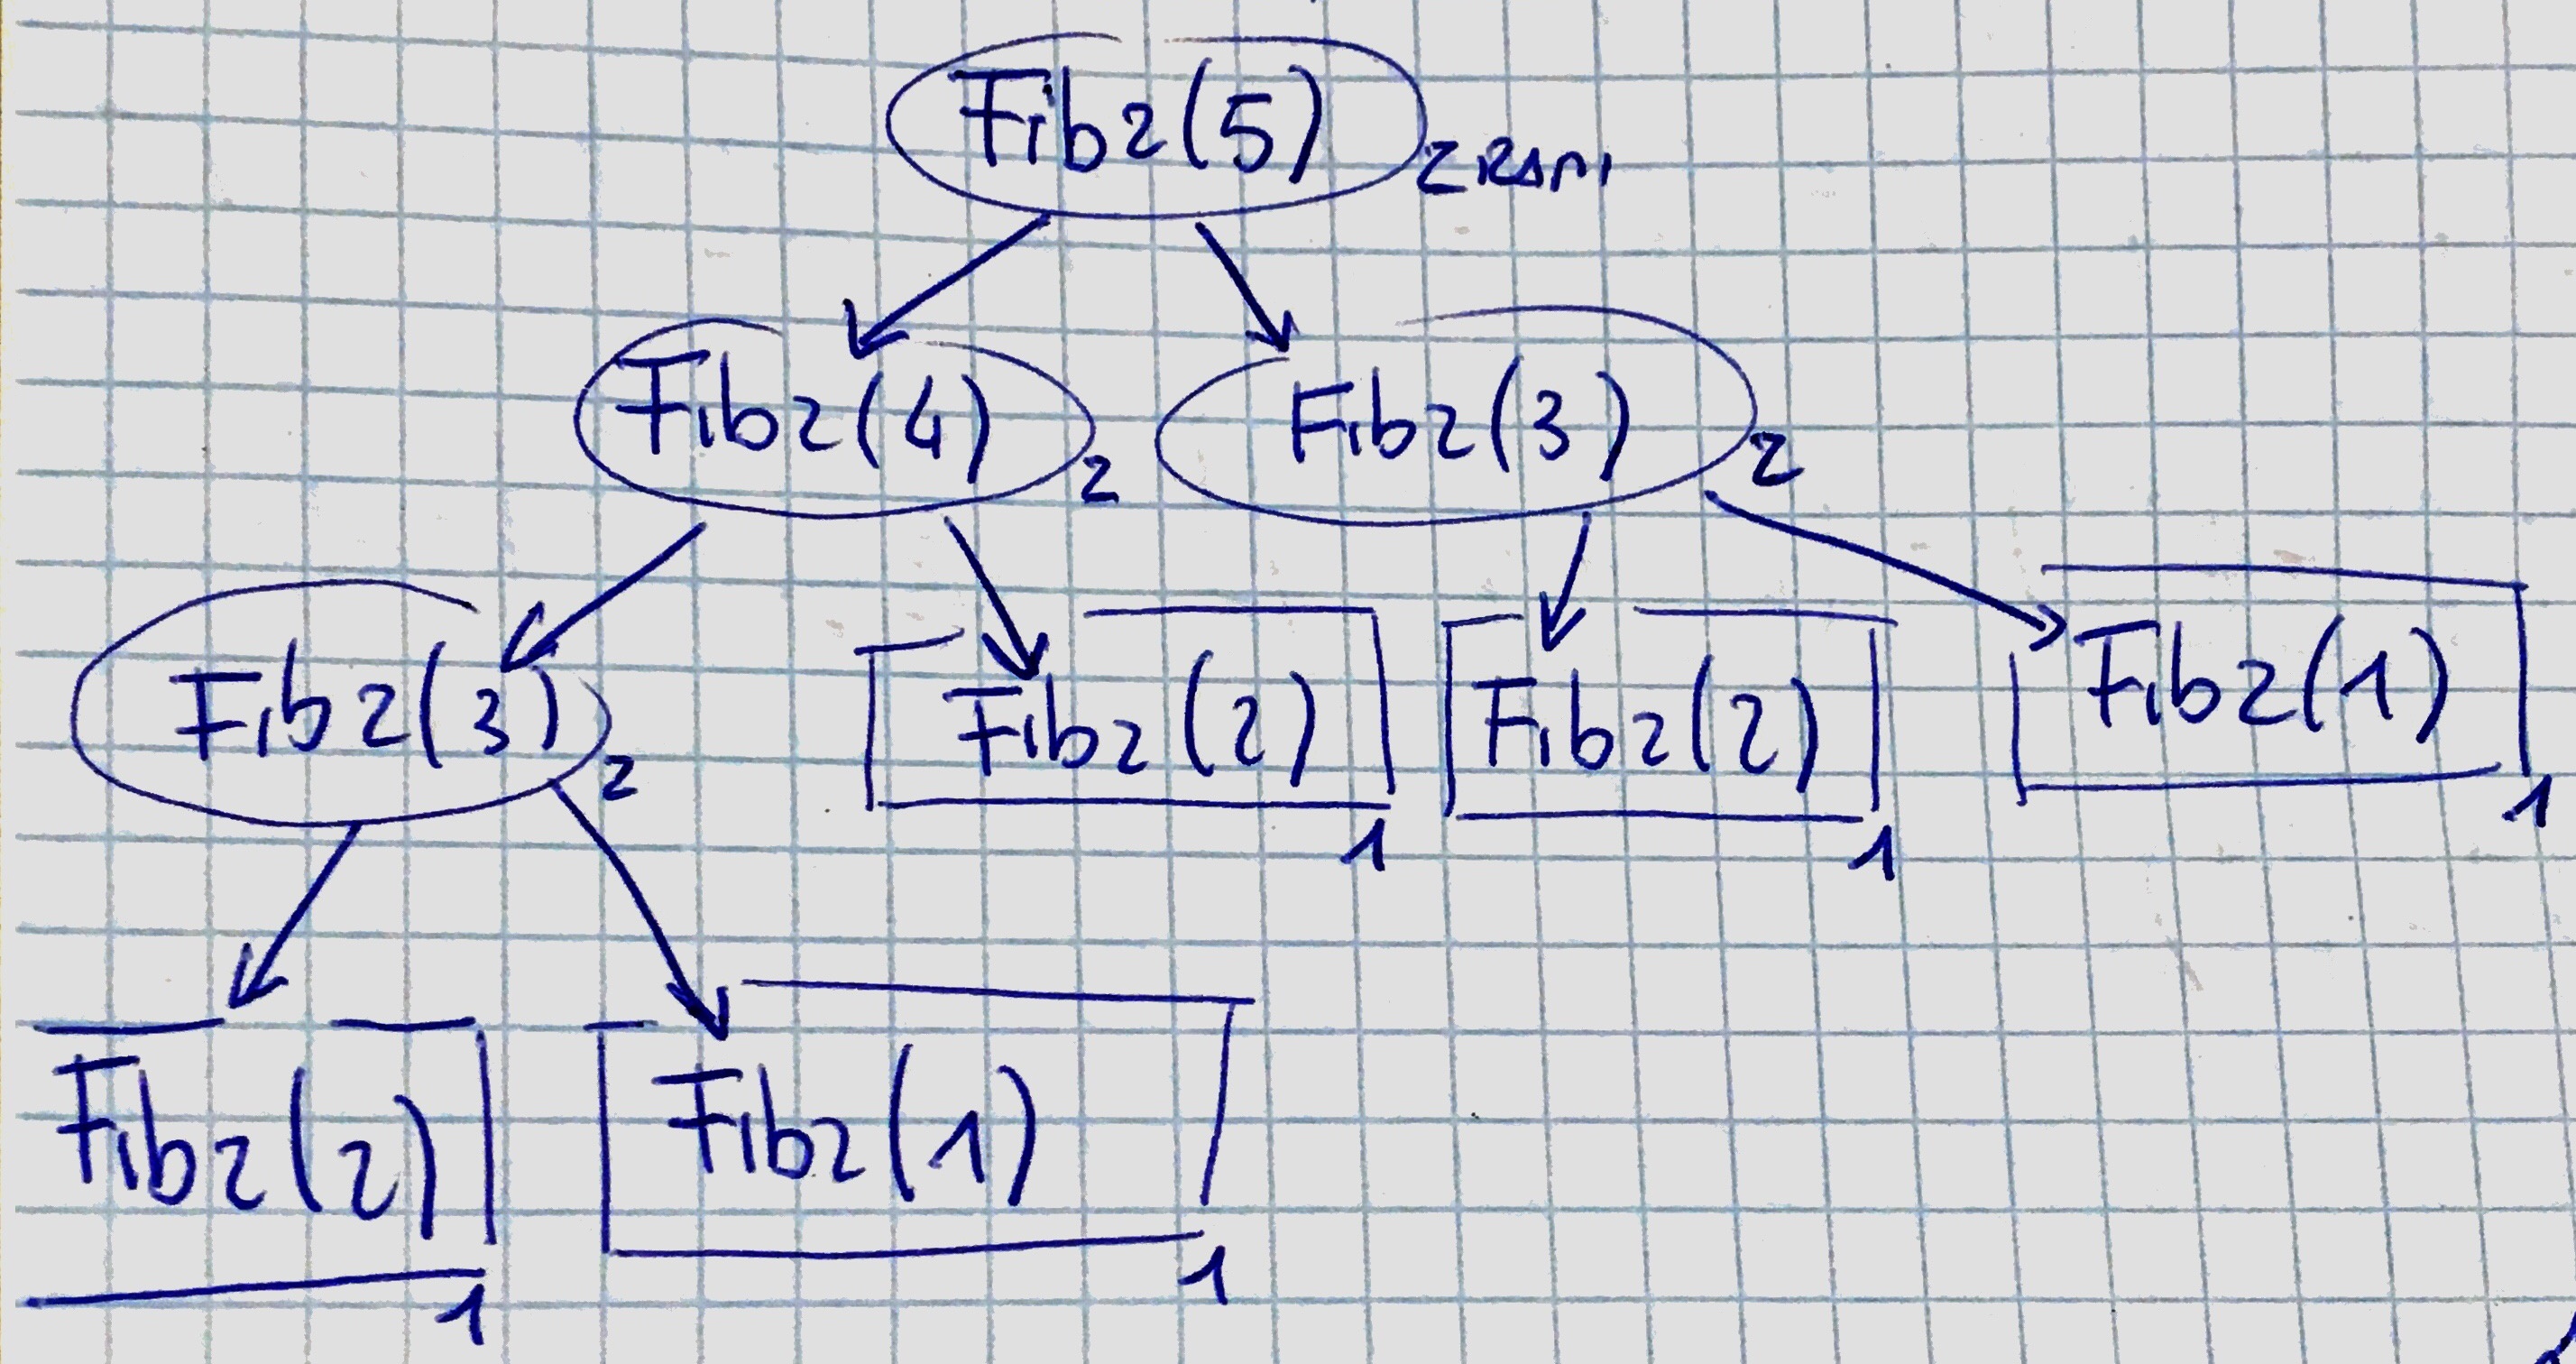 Fib2(5) 2 RAMI
Fib2(4) 2 Fib2(3) 2
Fib2(3) 2 Fib2(2) 1 Fib2(2) 1 Fib2(1) 1
Fib2(2) 1 Fib2(1) 1